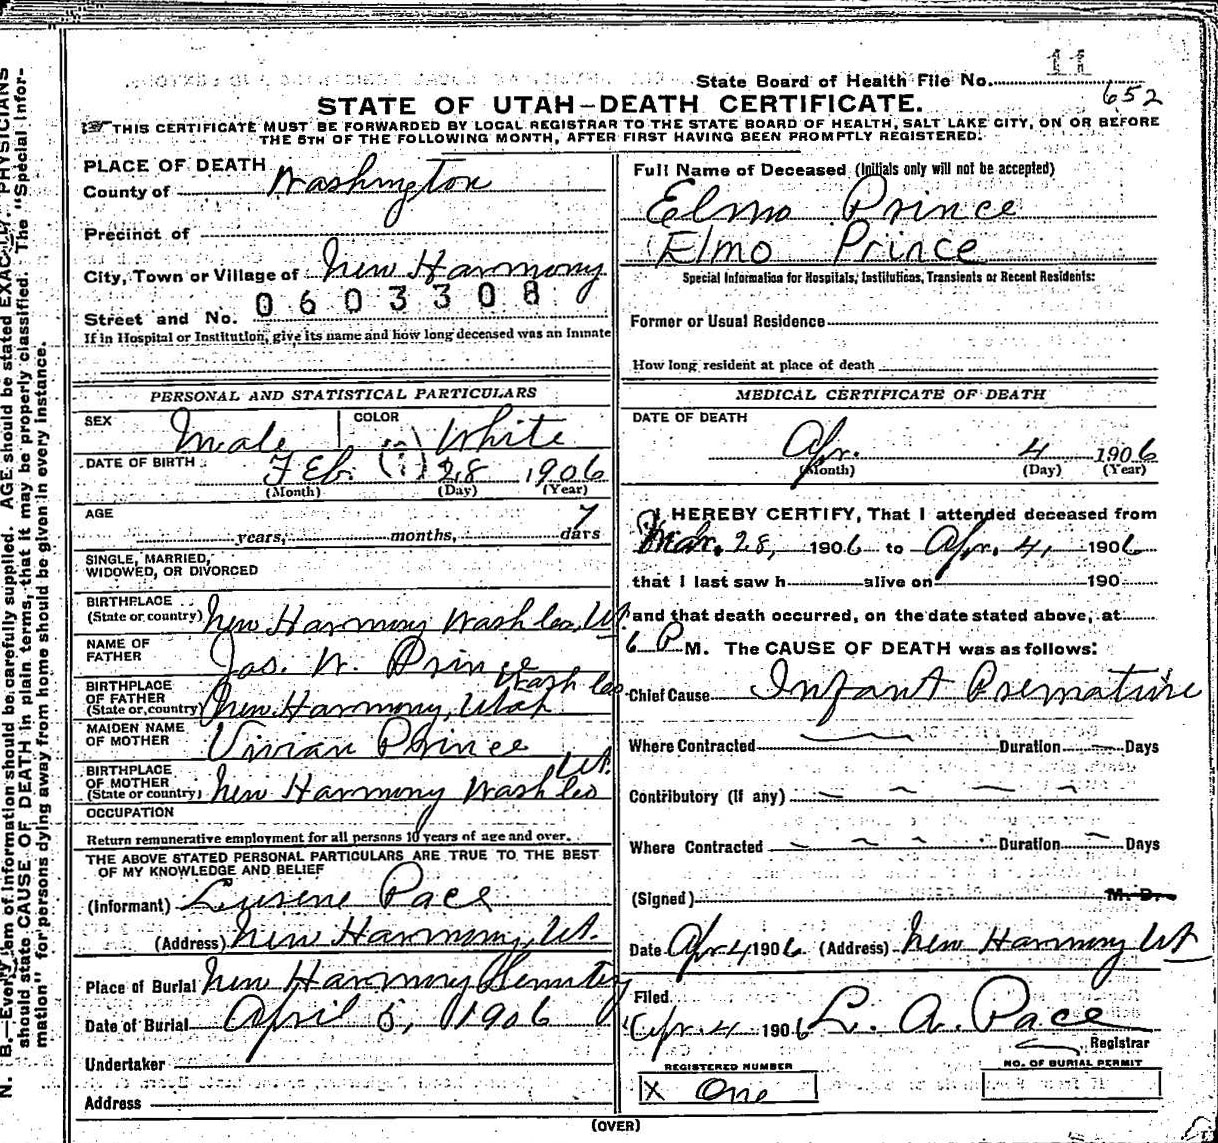 11
State Board of Health File No.
652
STATE OF UTAH-DEATH CERTIFICATE.
THIS CERTIFICATE MUST BE FORWARDED BY LOCAL REGISTRAR TO THE STATE BOARD OF HEALTH, SALT LAKE CITY, ON OR BEFORE
THE 5TH OF THE FOLLOWING MONTH, AFTER FIRST HAVING BEEN PROMPTLY REGISTERED.
PLACE OF DEATH
County of Washington
Precinct of
City, Town or Village of New Harmony
0603308
Street and No.
If in Hospital or Institution, give its name and how long deceased was an Inmate
PERSONAL AND STATISTICAL PARTICULARS
SEX Male COLOR White
DATE OF BIRTH Feb. (?) 28 1906
(Month) (Day) (Year)
AGE 7
years, months, days
SINGLE, MARRIED,
WIDOWED, OR DIVORCED
BIRTHPLACE
(State or country) New Harmony Wash Co, Ut
NAME OF
FATHER Jas. W. Prince
BIRTHPLACE
OF FATHER Wash Co
(State or country) New Harmony, Utah
MAIDEN NAME
OF MOTHER Vivian Prince
BIRTHPLACE
OF MOTHER Ut.
(State or country) New Harmony Wash Co
OCCUPATION
Return remunerative employment for all persons 10 years of age and over.
THE ABOVE STATED PERSONAL PARTICULARS ARE TRUE TO THE BEST
OF MY KNOWLEDGE AND BELIEF
(Informant) Lurene Pace
(Address) New Harmony, Ut.
Place of Burial New Harmony Cemetery
Date of Burial April 5, 1906
Undertaker
Address
Full Name of Deceased (Initials only will not be accepted)
Elmo Prince
Elmo Prince
Special Information for Hospitals, Institutions, Transients or Recent Residents:
Former or Usual Residence
How long resident at place of death
MEDICAL CERTIFICATE OF DEATH
DATE OF DEATH
Apr. 4 1906
(Month) (Day) (Year)
I HEREBY CERTIFY, That I attended deceased from
Mar. 28, 1906 to Apr. 4, 1906
that I last saw h alive on 190
and that death occurred, on the date stated above, at
6 P M. The CAUSE OF DEATH was as follows:
Chief Cause Infant Premature
Where Contracted Duration Days
Contributory (If any)
Where Contracted Duration Days
(Signed) M. D.
Date Apr 4 1906 (Address) New Harmony Ut
Filed
Apr 4 1906 L. A. Pace
Registrar
REGISTERED NUMBER
X One
NO. OF BURIAL PERMIT
(OVER)
N. B.—Every item of Information should be carefully supplied. AGE should be stated EXACTLY. PHYSICIANS
should state CAUSE OF DEATH in plain terms, that it may be properly classified. The "Special Infor-
mation" for persons dying away from home should be given in every instance.